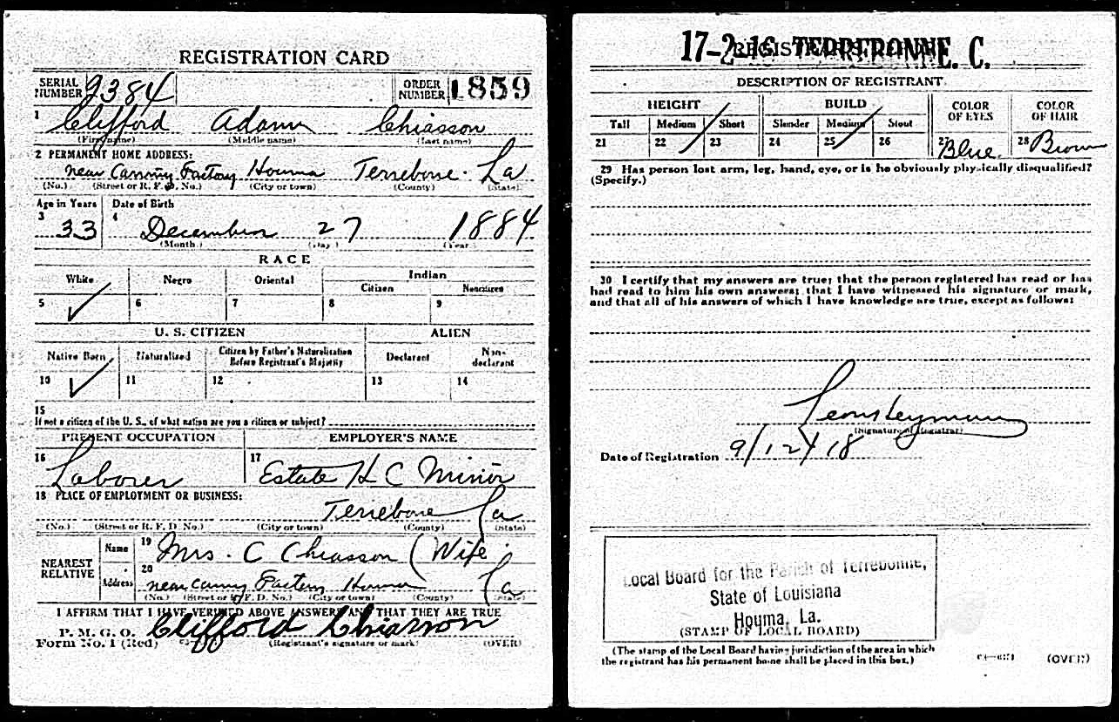 REGISTRATION CARD
SERIAL NUMBER 9384 ORDER NUMBER 1859
1 Clifford Adam Chiasson
(First name) (Middle name) (Last name)
2 PERMANENT HOME ADDRESS:
near Canning Factory Houma Terrebone La
(No.) (Street or R. F. D. No.) (City or town) (County) (State)
Age in Years Date of Birth
3 33 4 December 27 1884
(Month.) (Day.) (Year.)
RACE
White Negro Oriental Indian
Citizen Noncitizen
5 ✓ 6 7 8 9
U. S. CITIZEN ALIEN
Native Born Naturalized Citizen by Father's Naturalization Before Registrant's Majority Declarant Non-declarant
10 ✓ 11 12 13 14
15
If not a citizen of the U. S., of what nation are you a citizen or subject?
PRESENT OCCUPATION EMPLOYER'S NAME
16 Laborer 17 Estate H C Minor
18 PLACE OF EMPLOYMENT OR BUSINESS:
Terrebone La
(No.) (Street or R. F. D. No.) (City or town) (County) (State)
NEAREST RELATIVE Name 19 Mrs. C Chiasson (Wife
Address 20 near Canng Factory Houma La
(No.) (Street or R. F. D. No.) (City or town) (County) (State)
I AFFIRM THAT I HAVE VERIFIED ABOVE ANSWERS AND THAT THEY ARE TRUE
P. M. G. O.
Form No. 1 (Red) Clifford Chiasson
(Registrant's signature or mark) (OVER)
17-2-16 TERREBONNE. C.
REGISTRAR'S REPORT
DESCRIPTION OF REGISTRANT
HEIGHT BUILD COLOR OF EYES COLOR OF HAIR
Tall Medium Short Slender Medium Stout
21 22 23 24 25 26 27 Blue. 28 Brown
29 Has person lost arm, leg, hand, eye, or is he obviously physically disqualified?
(Specify.)
30 I certify that my answers are true; that the person registered has read or has
had read to him his own answers; that I have witnessed his signature or mark,
and that all of his answers of which I have knowledge are true, except as follows:
(Signature of Registrar)
Date of Registration 9/12/18
Local Board for the Parish of Terrebonne,
State of Louisiana
Houma, La.
(STAMP OF LOCAL BOARD)
(The stamp of the Local Board having jurisdiction of the area in which
the registrant has his permanent home shall be placed in this box.)
(OVER)